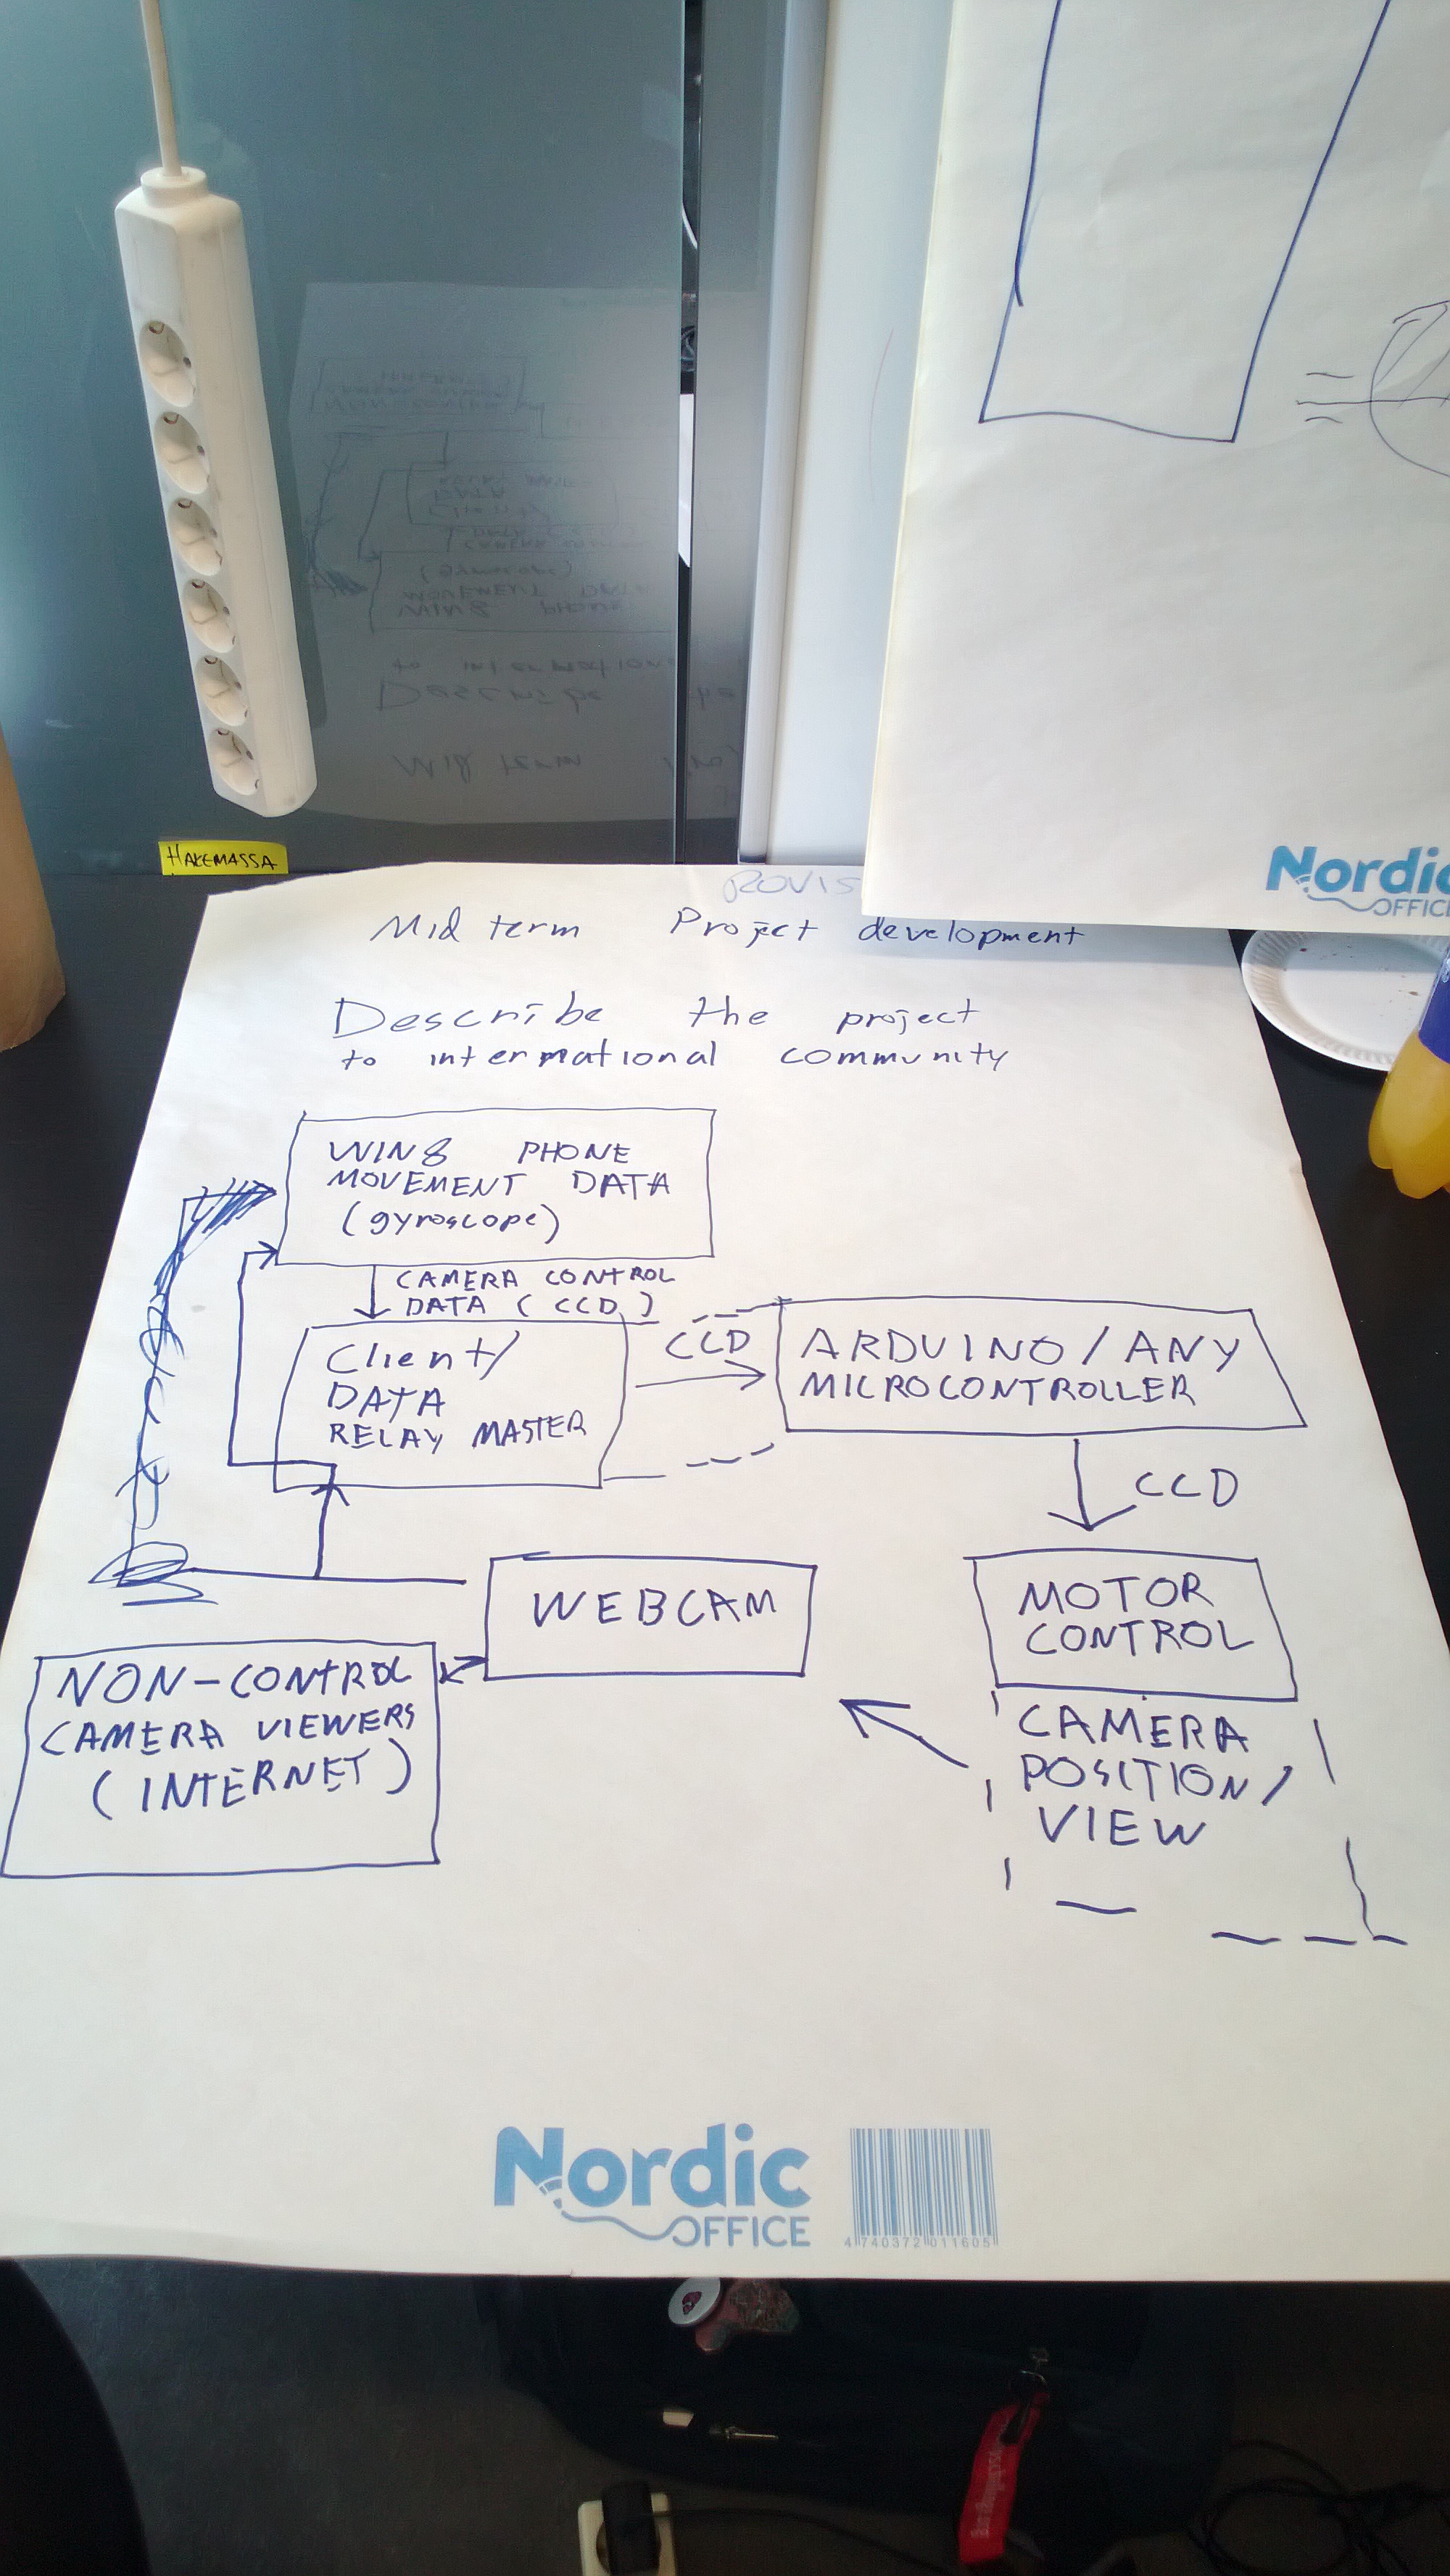 HAKEMASSA
Nordic
OFFICE
Mid term Project development
Describe the project
to intermational community
WIN8 PHONE
MOVEMENT DATA
(gyroscope)
CAMERA CONTROL
DATA (CCD)
Client/
DATA
RELAY MASTER
CCD
ARDUINO/ANY
MICROCONTROLLER
CCD
WEBCAM
MOTOR
CONTROL
CAMERA
POSITION/
VIEW
NON-CONTROL
CAMERA VIEWERS
(INTERNET)
Nordic
OFFICE
4 740372 011605